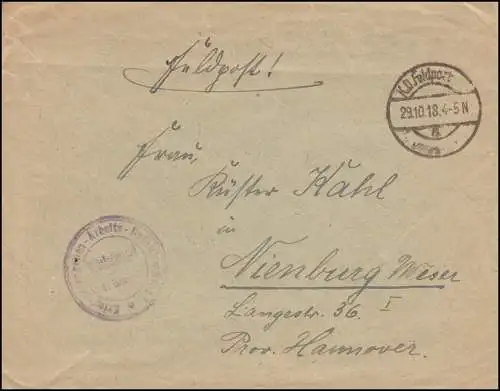 Feldpost!
K.D. Feldpost
29.10.18. 4-5 N
Frau
Küster Kahl
in
Nienburg Weser
Langestr. 36. I
Prov. Hannover.
-Arbeits-